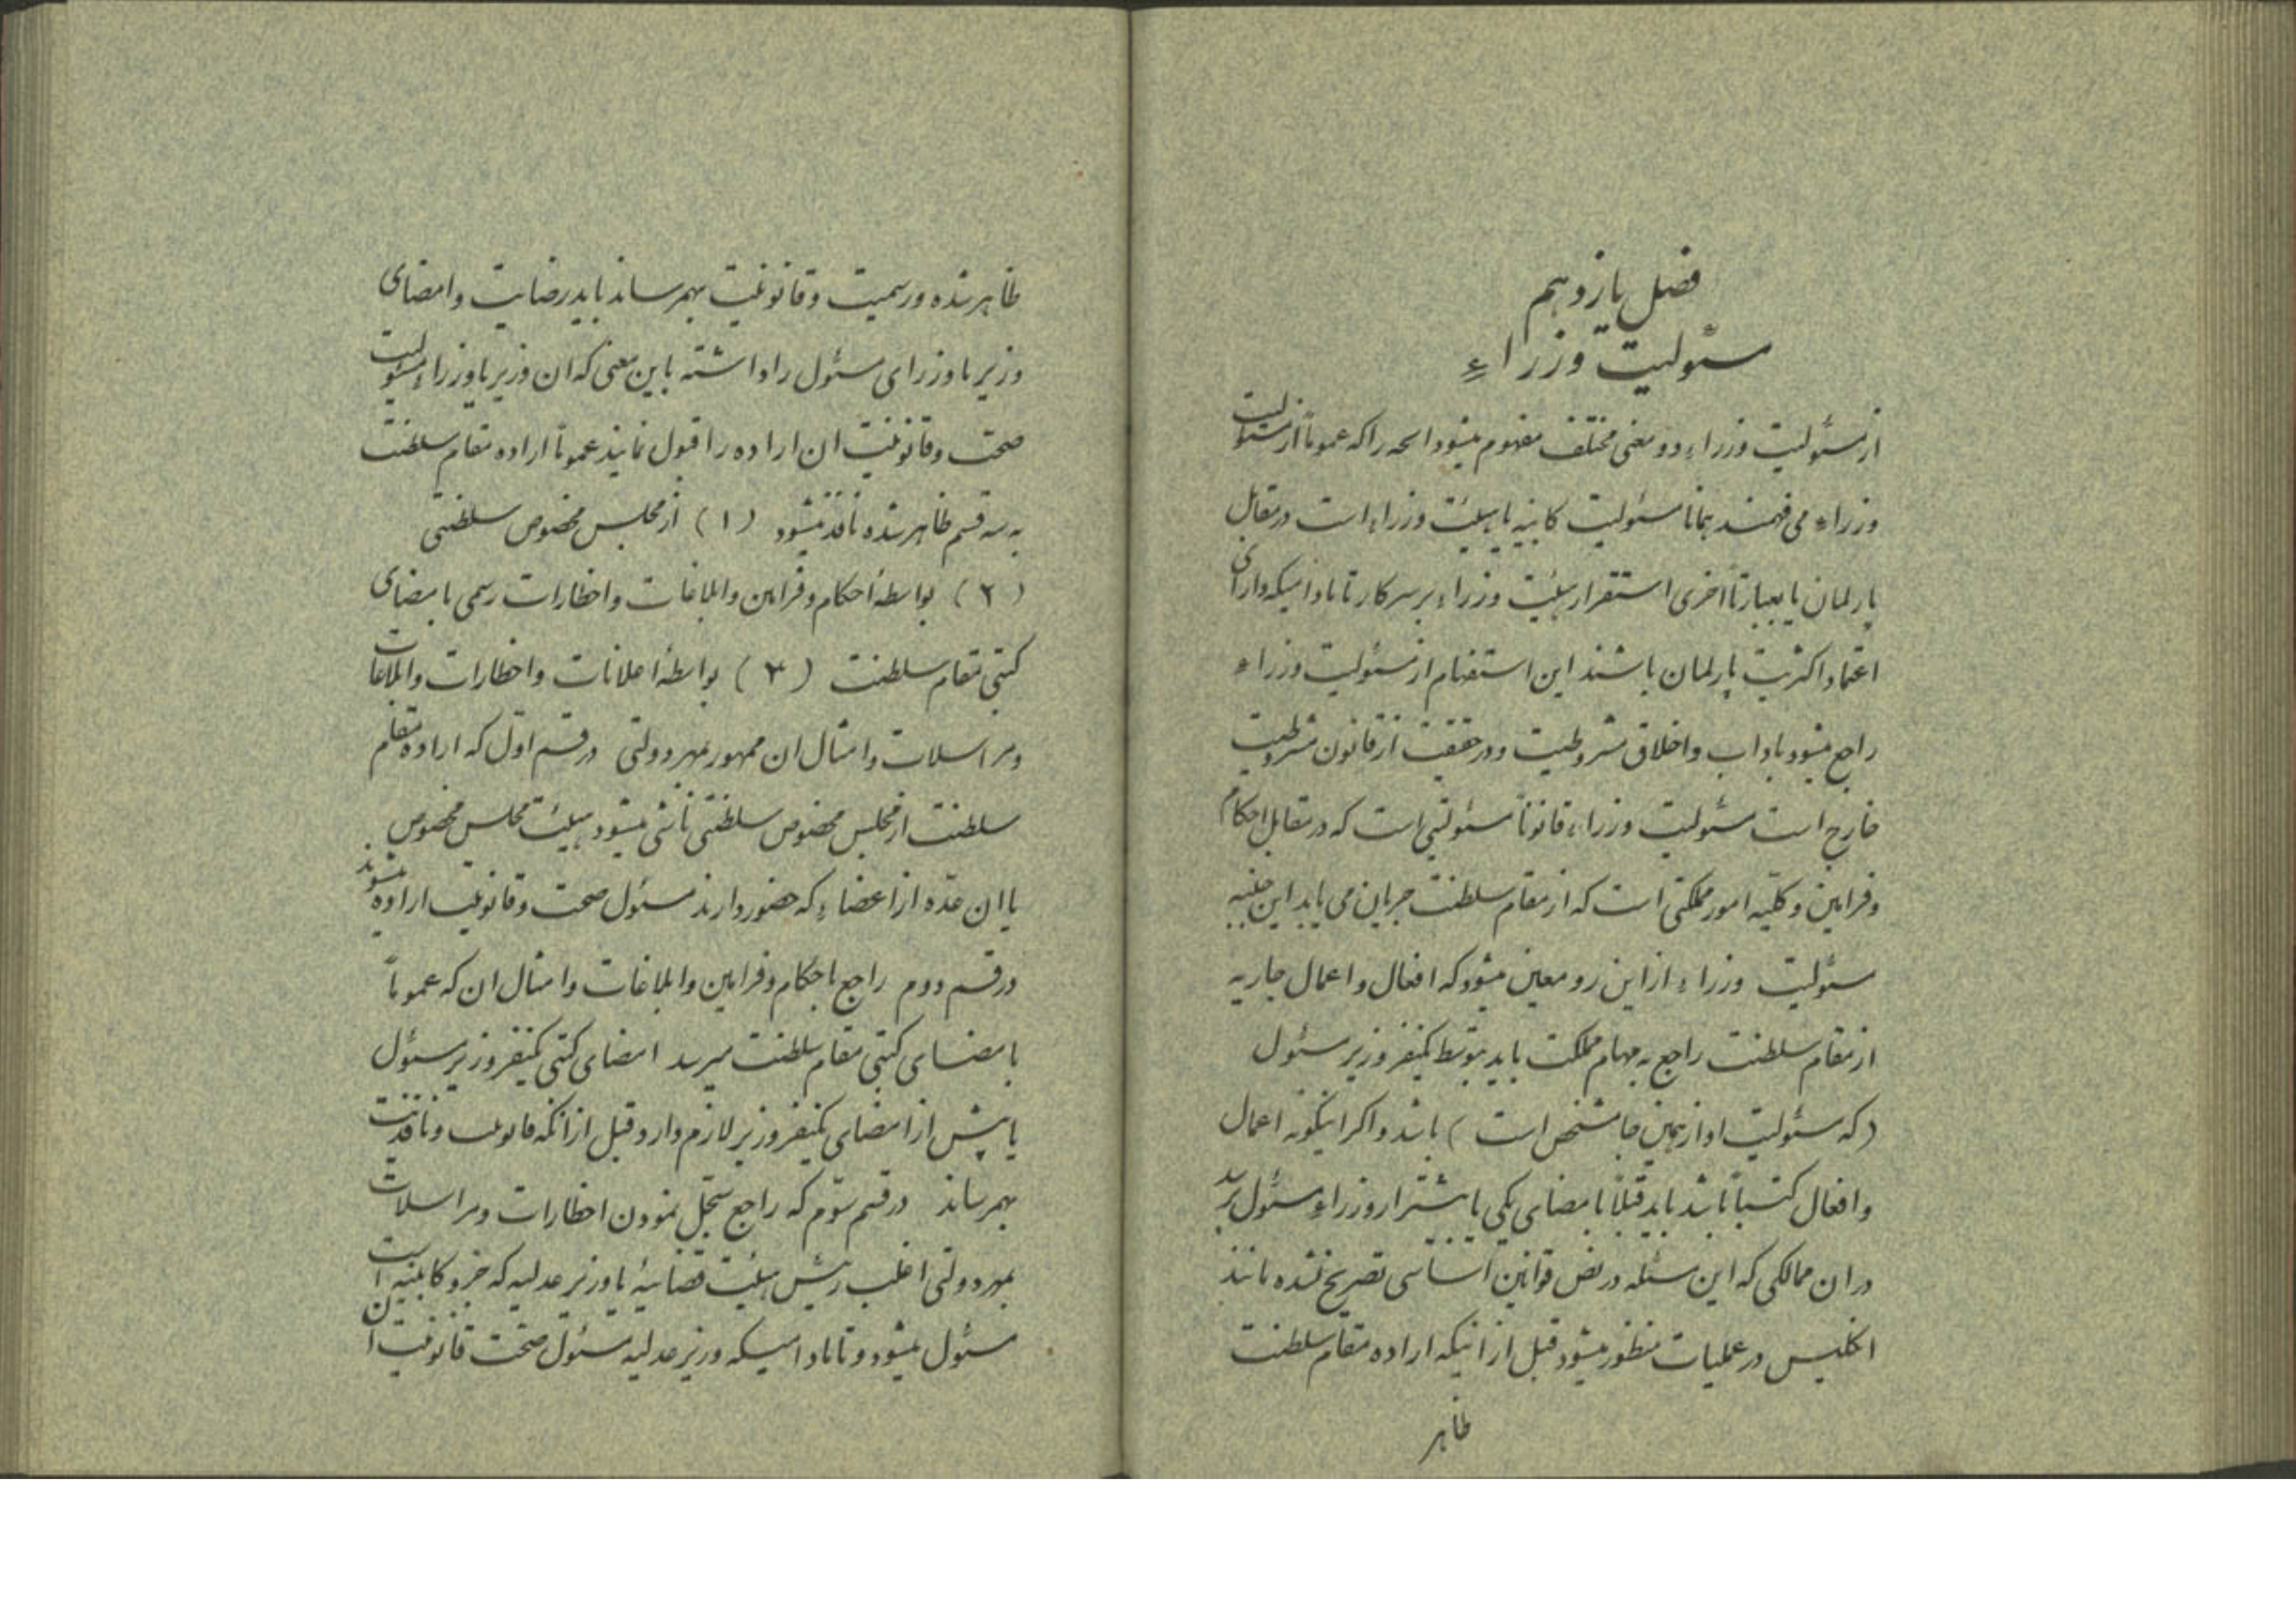 فصل یازدهم
مسئولیت وزراء
از مسئولیت وزراء دو معنی مختلف مفهوم میشود انچه را که عموماً از مسئولیت
وزراء می فهمند همانا مسئولیت کابینه یا هیئت وزراء است در مقابل
پارلمان یا بعبارتاً اخری استقرار هیئت وزراء بر سر کار تا مادامیکه دارای
اعتماد اکثریت پارلمان باشند این استفهام از مسئولیت وزراء
راجع میشود باداب و اخلاق مشروطیت و در حقیقت از قانون مشروطیت
خارج است مسئولیت وزراء قانوناً مسئولیتی است که در مقابل احکام
و فرامین و کلیّه امور مملکتی است که از مقام سلطنت جریان می یابد این جنبه
مسئولیت وزراء از این رو معین میشود که افعال و اعمال جاریه
از مقام سلطنت راجع به مهام مملکت باید بتوسط یکنفر وزیر مسئول
(که مسئولیت او از همین جا مشخص است) باشد و اکر اینکونه اعمال
و افعال کتباً باشد باید قبلاً بامضای یکی یا بیشتر از وزراء مسئول برسد
در ان ممالکی که این مسئله در نص قوانین اساسی تصریح نشده مانند
انکلیس در عملیات منظور میشود قبل از اینکه اراده مقام سلطنت
ظاهر
ظاهر شده و رسمیت و قانونیّت بهم رساند باید رضایت و امضای
وزیر یا وزرای مسئول را داشته باین معنی که ان وزیر یا وزراء مسئولیت
صحت و قانونیّت ان اراده را قبول نمایند عموماً اراده مقام سلطنت
به سه قسم ظاهر شده نافذ میشود (۱) از مجلس مخصوص سلطنتی
(۲) بواسطهٔ احکام و فرامین و ابلاغات و اخطارات رسمی بامضای
کتبی مقام سلطنت (۳) بواسطهٔ اعلانات و اخطارات و ابلاغات
و مراسلات و امثال ان ممهور بمهر دولتی در قسم اوّل که اراده مقام
سلطنت از مجلس مخصوص سلطنتی ناشی میشود هیئت مجلس مخصوص
یا ان عدّه از اعضاء که حضور دارند مسئول صحت و قانونیت اراده میشوند
در قسم دوم راجع باحکام و فرامین و ابلاغات و امثال ان که عموماً
بامضای کتبی مقام سلطنت میرسد امضای کتبی یکنفر وزیر مسئول
یا بیش از امضای یکنفر وزیر لازم دارد قبل از انکه قانونیت و نافذیّت
بهم رساند در قسم سوّم که راجع بسجّل نمودن اخطارات و مراسلات
بمهر دولتی اغلب رئیس هیئت قضائیهٔ یا وزیر عدلیه که جزو کابینه است
مسئول میشود و تا مادامیکه وزیر عدلیه مسئول صحّت قانونیّت ان